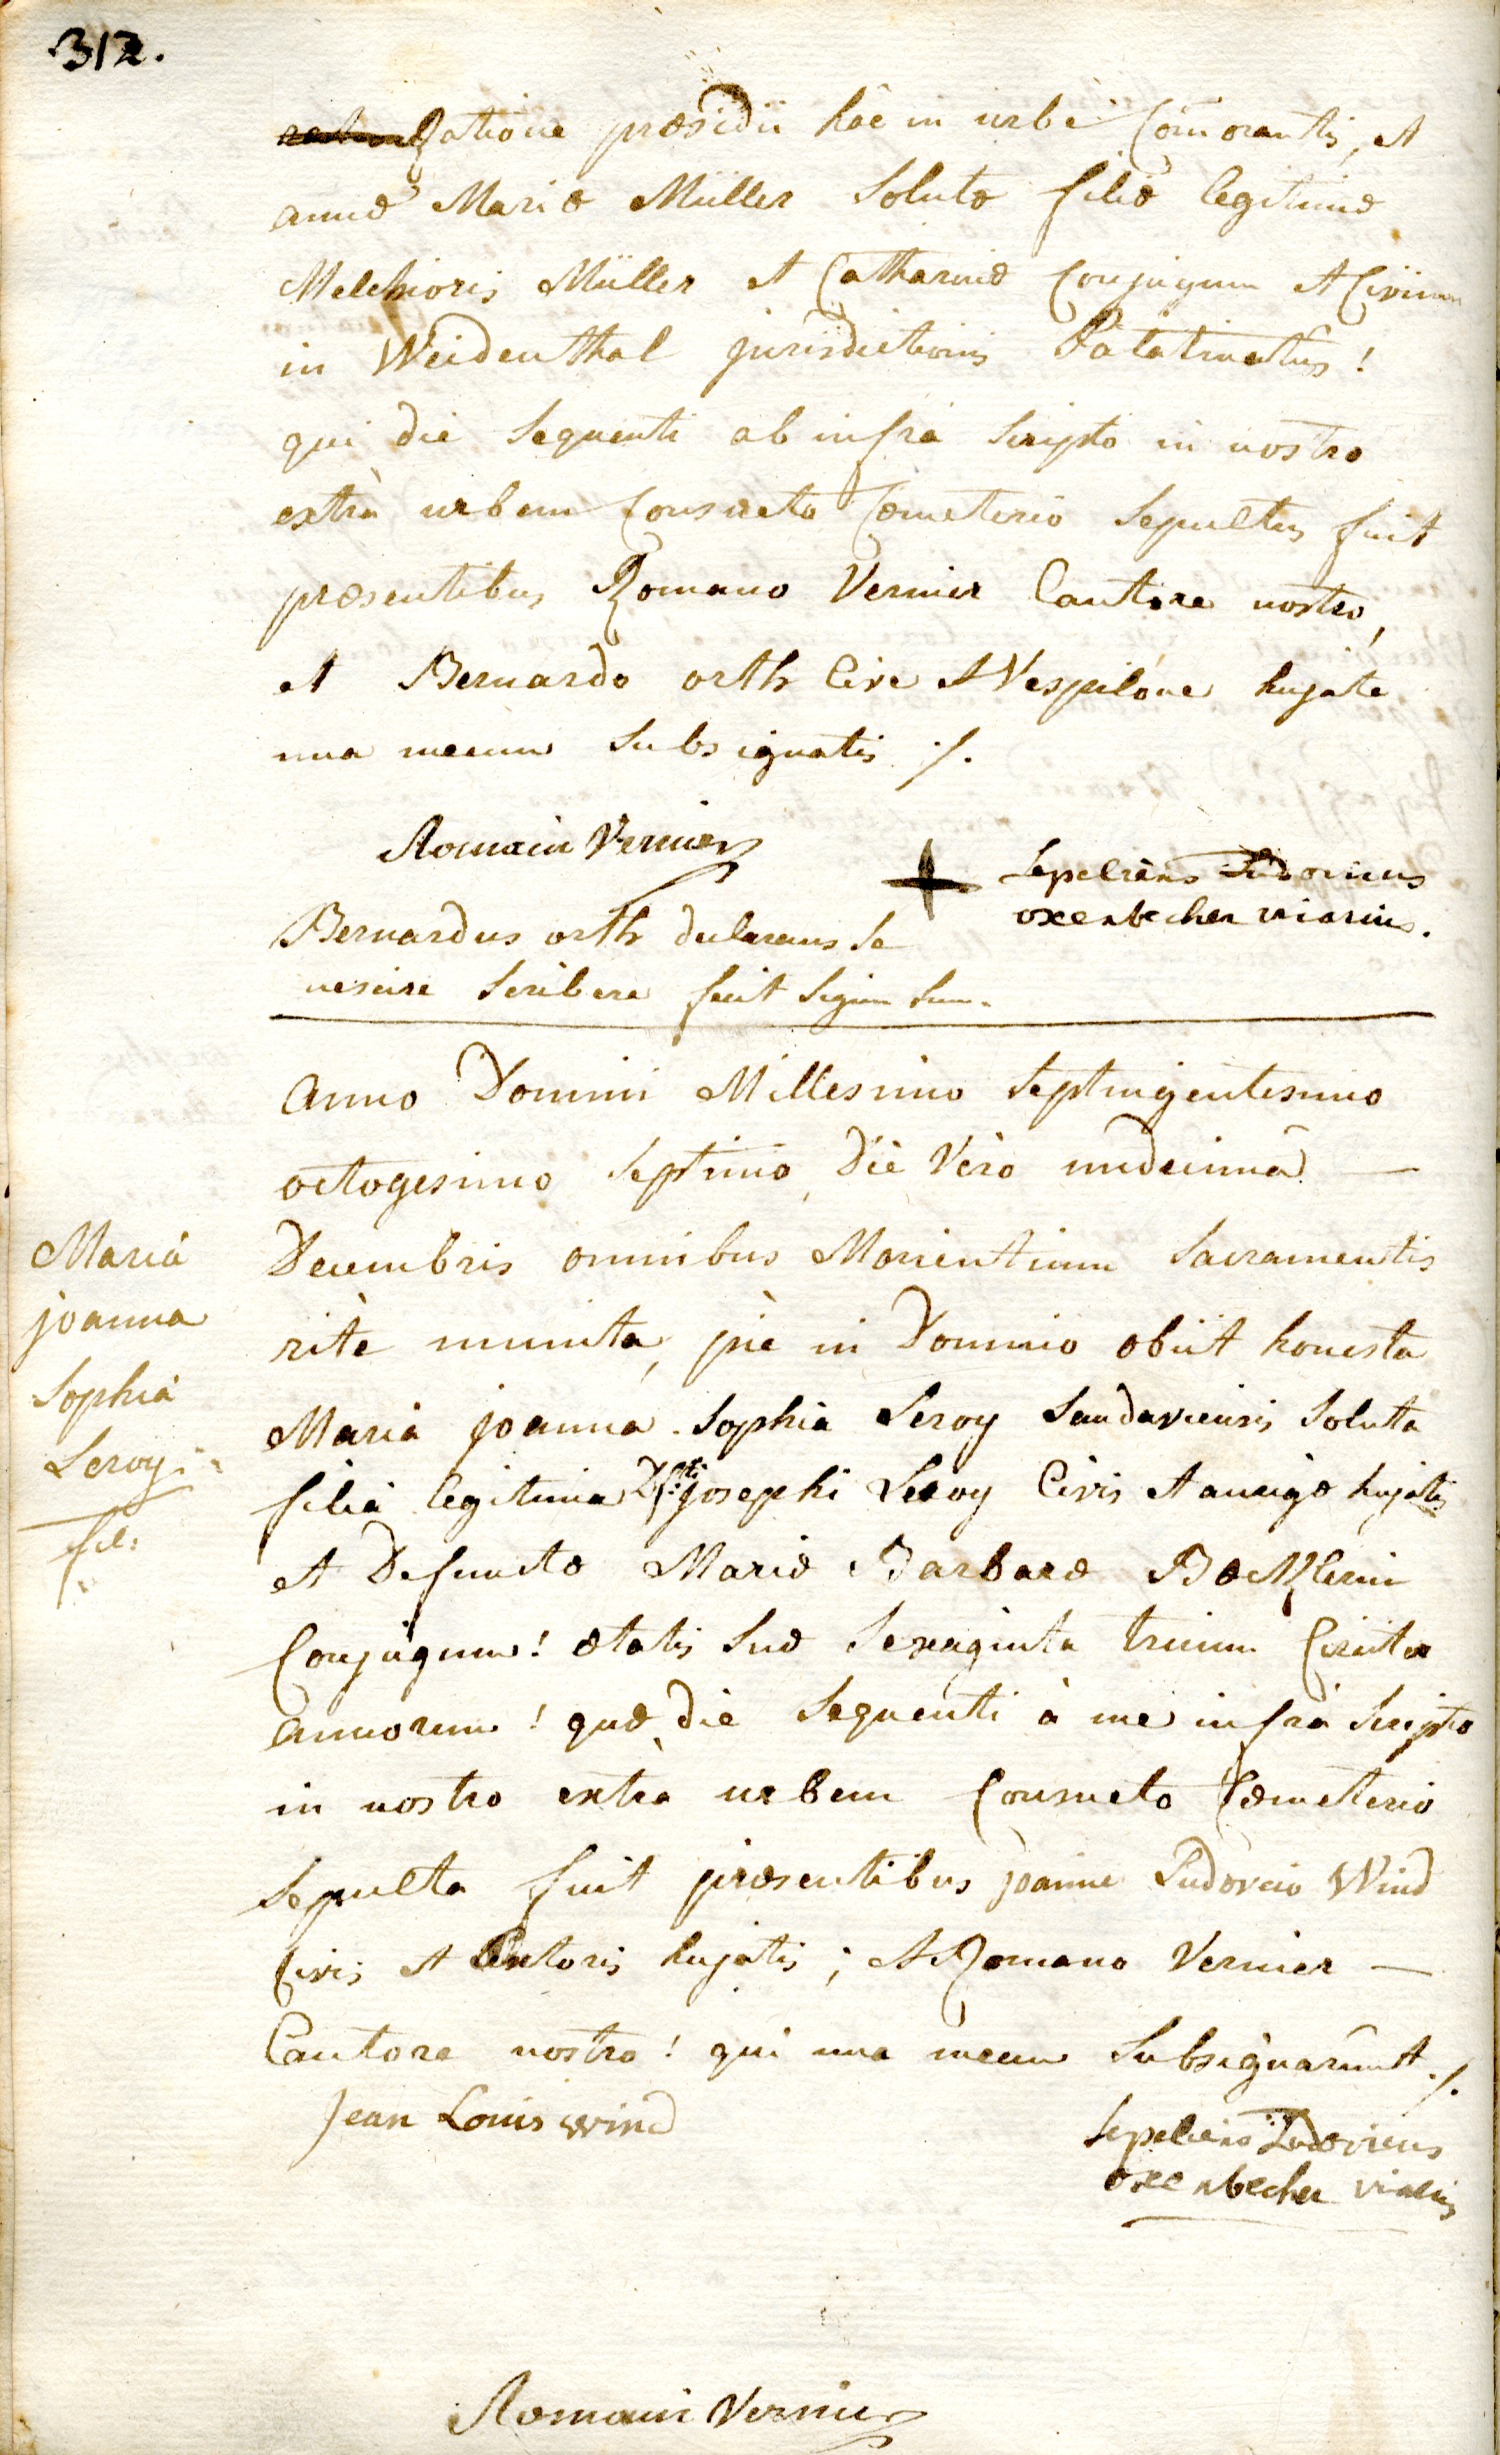 312.
Ratione præsidii hâc in urbe Com̄orantis, et
annæ Mariæ Müller Solutæ filiæ legitimæ
Melchioris Müller et Catharinæ Conjugum et Civium
in Weidenthal jurisdictionis Palatinatûs!
qui die Sequenti ab infrà Scripto in nostro
extrà urbem Consueto Cœmeterio Sepultus fuit
præsentibus Romano Vernier Cantore nostro,
et Bernardo orth Cive et Vespilone hujate
una mecum Subsignatis ./.
Romain Vernier
+ Sepeliens Ludovicus
oxenbecher vicarius.
Bernardus orth declarans Se
nescire Scribere fecit Signum Suum.
Anno Domini Millesimo Septingentesimo
octogesimo Septimo, Die Verò undecimâ —
Decembris omnibus Morientium Sacramentis
ritè munita, piè in Domino obiit honesta
Maria joanna Sophia Leroy Landaviensis Soluta
filia legitima Dfti josephi Leroy Civis et aurigæ hujatis
et Defunctæ Mariæ Barbaræ
Conjugum! ætatis Suæ Sexaginta trium Circiter
annorum! quæ die Sequenti à me infrà Scripto
in nostro extrà urbem Consueto Cœmeterio
Sepulta fuit præsentibus joanne Ludovico Wind
Civis et hujatis; et Romano Vernier —
Cantore nostro! qui una mecum Subsignarûnt ./.
Maria
joanna
Sophia
Leroy
fil:
Jean Louis wind
Sepeliens Ludovicus
oxenbecher vicarius
Romain Vernier